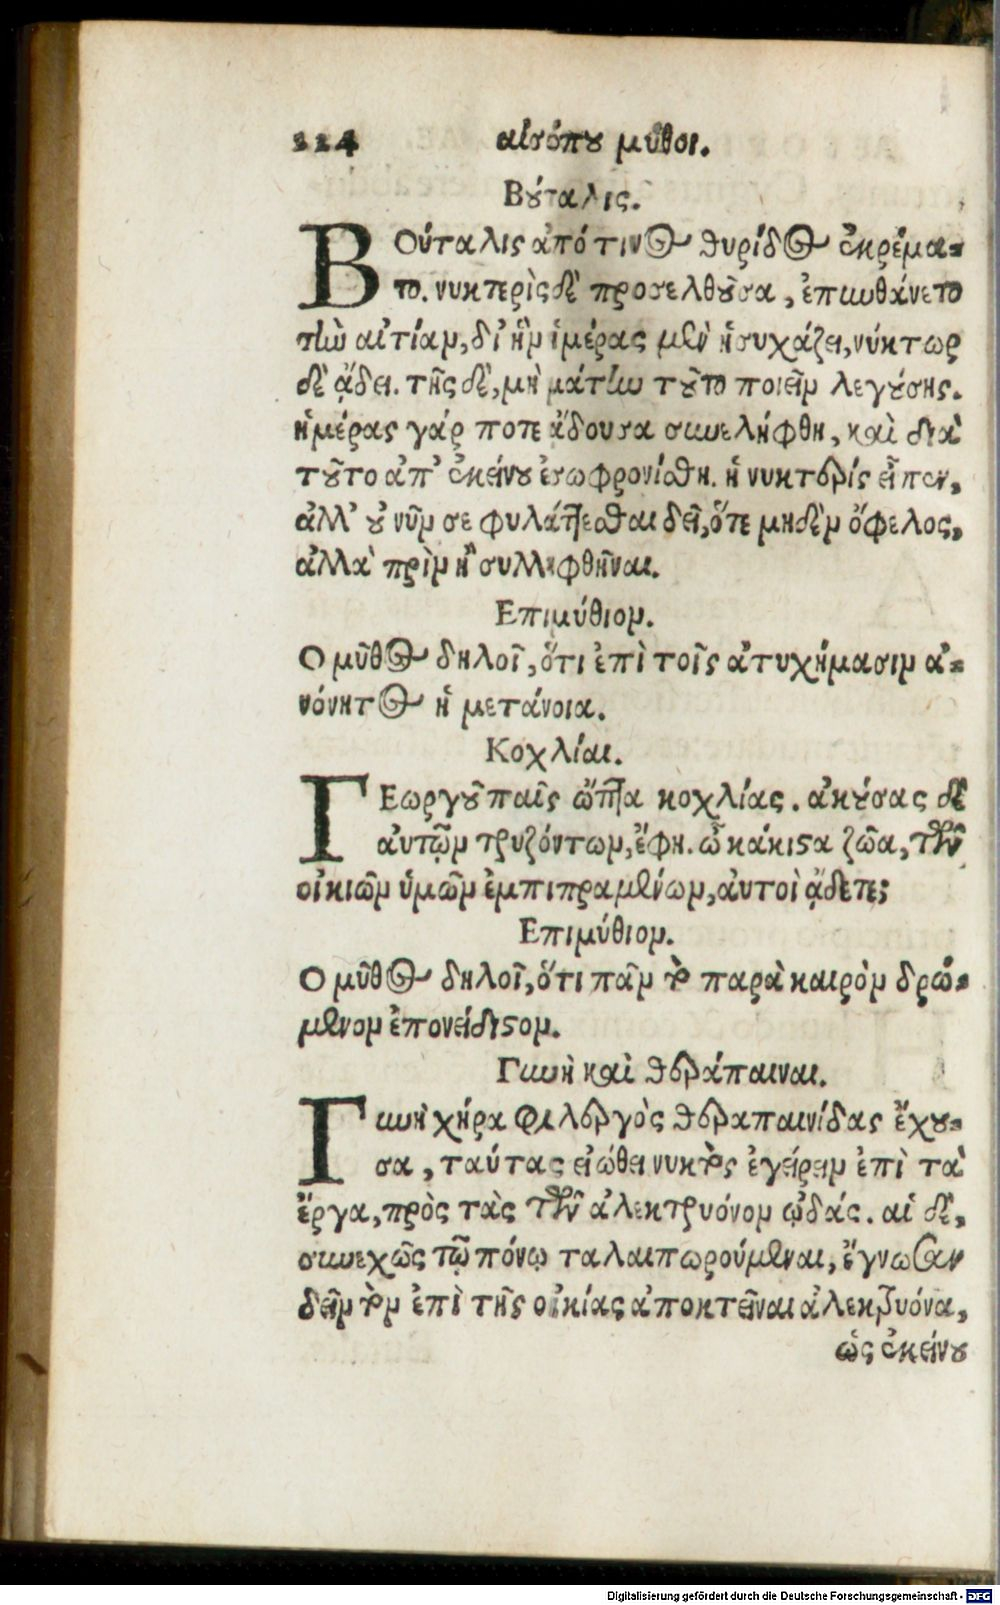 224 αἰσόπου μῦθοι.
Βούταλις.
ΒΟύταλις ἀπό τινος θυρίδος ἐκρέμα-
το. νυκτερὶς δὲ προσελθοῦσα, ἐπυνθάνετο
τὴν αἰτίαν, δι ἣν ἡμέρας μὲν ἡσυχάζει, νύκτωρ
δὲ ᾄδει. τῆς δὲ, μὴ μάτην τοῦτο ποιεῖν λεγούσης.
ἡμέρας γάρ ποτε ᾄδουσα συνελήφθη, καὶ διὰ
τοῦτο ἀπ' ἐκείνου ἐσωφρονίσθη. ἡ νυκτερίς εἶπεν,
ἀλλ' οὐ νῦν σε φυλάττεσθαι δεῖ, ὅτε μηδὲν ὄφελος,
ἀλλὰ πρὶν ἢ συλληφθῆναι.
Επιμύθιον.
Ο μῦθος δηλοῖ, ὅτι ἐπὶ τοῖς ἀτυχήμασιν ἀ-
νόνητος ἡ μετάνοια.
Κοχλίαι.
ΓΕωργοῦ παῖς ὤπτα κοχλίας. ἀκούσας δὲ
αὐτῶν τρυζόντων, ἔφη. ὦ κάκιστα ζῶα, τῶν
οἰκιῶν ὑμῶν ἐμπιπραμένων, αὐτοὶ ᾄδετε;
Επιμύθιον.
Ο μῦθος δηλοῖ, ὅτι πᾶν τὸ παρὰ καιρὸν δρώ-
μενον ἐπονείδιστον.
Γυνὴ καὶ θεράπαιναι.
Γυνὴ χήρα φιλεργὸς θεραπαινίδας ἔχου-
σα, ταύτας εἰώθει νυκτὸς ἐγείρειν ἐπὶ τὰ
ἔργα, πρὸς τὰς τῶν ἀλεκτρυόνον ᾠδάς. αἱ δὲ,
συνεχῶς τῷ πόνῳ ταλαιπωρούμεναι, ἔγνωσαν
δεῖν τὸν ἐπὶ τῆς οἰκίας ἀποκτεῖναι ἀλεκτρυόνα,
ὡς ἐκείνου
Digitalisierung gefördert durch die Deutsche Forschungsgemeinschaft - DFG